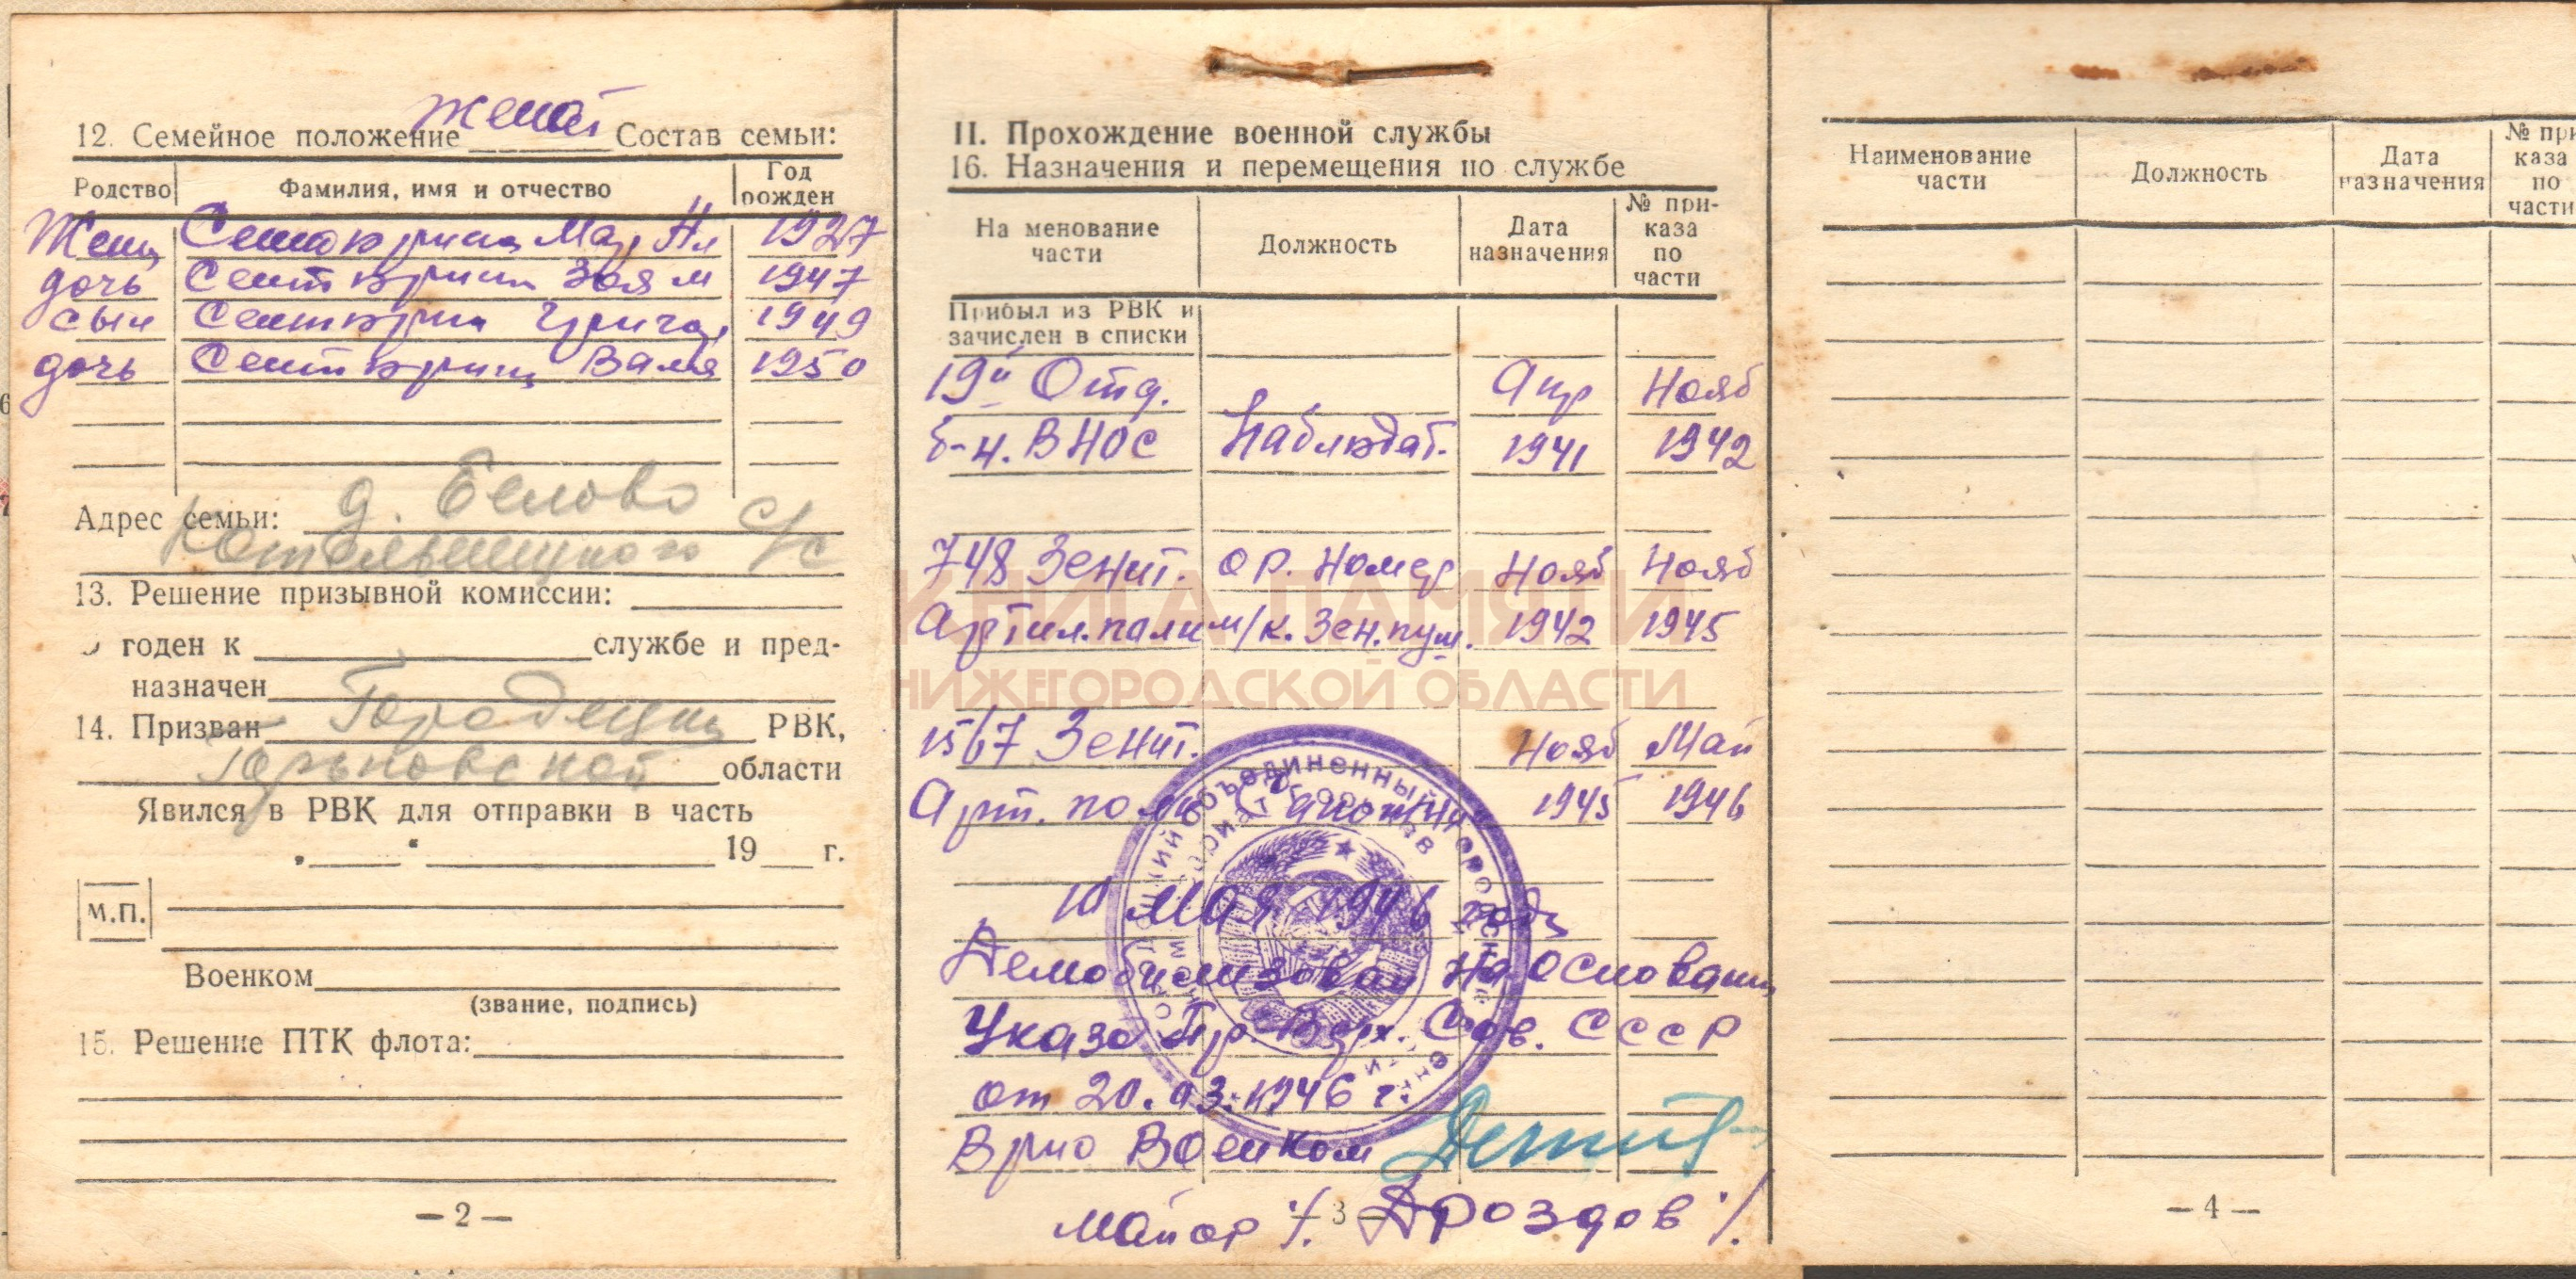 12. Семейное положение женат Состав семьи:
Родство Фамилия, имя и отчество Год рожден
Жена 1927
дочь Зоя 1947
сын 1949
дочь Валя 1950
Адрес семьи: д. Белово
Котельницкого С/с
13. Решение призывной комиссии:
годен к службе и пред-
назначен
14. Призван Городецким РВК,
Горьковской области
Явился в РВК для отправки в часть
„ “ 19 г.
М.П.
Военком
(звание, подпись)
15. Решение ПТК флота:
— 2 —
II. Прохождение военной службы
16. Назначения и перемещения по службе
На менование части Должность Дата назначения № при-каза по части
Прибыл из РВК и
зачислен в списки
19й Отд. Апр Нояб
б-н. ВНОС Наблюдат. 1941 1942
748 Зенит. ор. Номер Нояб Нояб
Артил. м/к. Зен. пуш. 1942 1945
КНИГА ПАМЯТИ
НИЖЕГОРОДСКОЙ ОБЛАСТИ
1567 Зенит. Нояб Май
Арт. полк 1945 1946
10 мая 1946 года
Демобилизован На Основании
Указа Пр. Верх. Сов. СССР
от 20.03.1946 г.
Врио Военком
майор /. Дроздов ./
— 3 —
Наименование части Должность Дата назначения № при каза по части
— 4 —